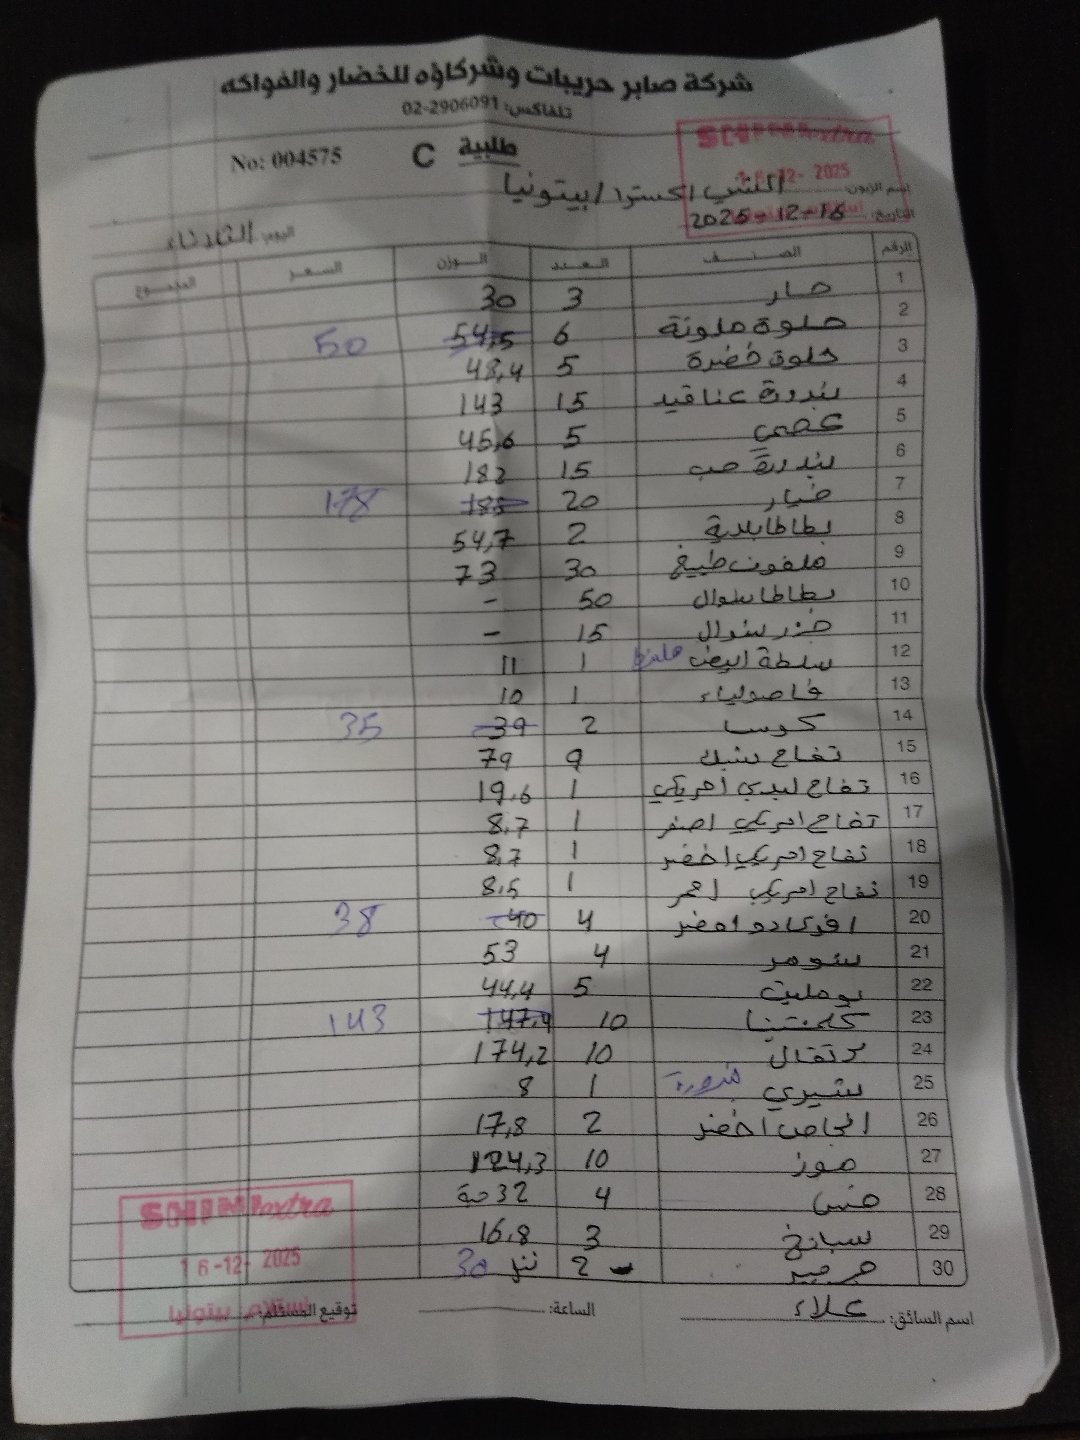 شركة صابر حريبات وشركاؤه للخضار والفواكه
تلفاكس: 02-2906091
No: 004575 C طلبية
SHINI extra
16-12-2025
اسم الزبون: الشني اكسترا / بيتونيا
التاريخ: 2025-12-16
اليوم: الثلاثاء
الرقم الصنف العدد الوزن السعر المجموع
1 حار 3 30
2 حلوة ملونة 6 54,5 50
3 حلوة خضرة 5 48,4
4 بندورة عناقيد 15 143
5 عجمي 5 45,6
6 بندورة حب 15 182
7 خيار 20 185 178
8 بطاطا بلدية 2 54,7
9 ملفوف طبيخ 30 73
10 بطاطا شوال 50 -
11 جزر شوال 15 -
12 سلطة ابيض 1 11
13 فاصولياء 1 10
14 كوسا 2 39 35
15 تفاح شبك 9 79
16 تفاح ليدي امريكي 1 19.6
17 تفاح امريكي اصفر 1 8,7
18 تفاح امريكي اخضر 1 8,7
19 تفاح امريكي احمر 1 8,5
20 افوكادو اخضر 4 40 38
21 شومر 4 53
22 بومليت 5 44,4
23 كلمنتينا 10 147,4 143
24 برتقال 10 174,2
25 شيري بندورة 1 8
26 اجاص اخضر 2 17,8
27 موز 10 124,3
28 خس 4 32 حبة
29 سبانخ 3 16,8
30 جرجير 2 30
اسم السائق: علاء الساعة: توقيع المستلم:
SHINI extra
16-12-2025
استلام بيتونيا